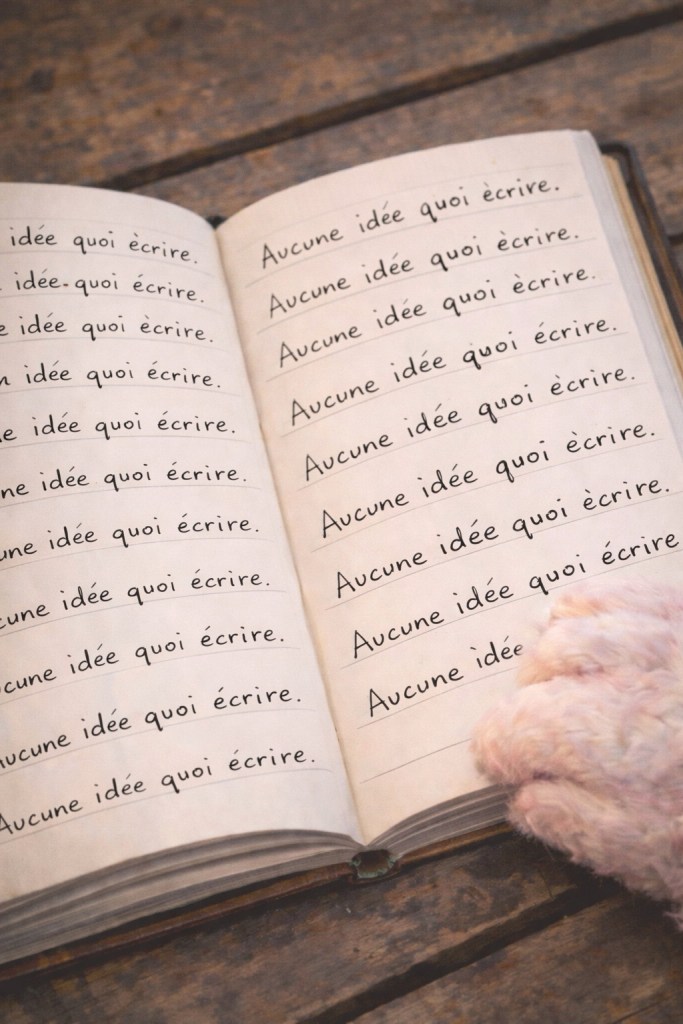 idée quoi ècrire.
idée-quoi écrire.
e idée quoi ècrire.
n idée quoi écrire.
e idée quoi écrire.
ne idée quoi écrire.
une idée quoi écrire.
cune idée quoi écrire.
cune idée quoi écrire.
ucune idée quoi écrire.
Aucune idée quoi écrire.
Aucune idée quoi ècrire.
Aucune idée quoi ècrire.
Aucune idée quoi ècrire.
Aucune idée quoi écrire.
Aucune idée quoi ècrire.
Aucune idée quoi ècrire.
Aucune idée quoi ècrire.
Aucune idée quoi écrire
Aucune idée